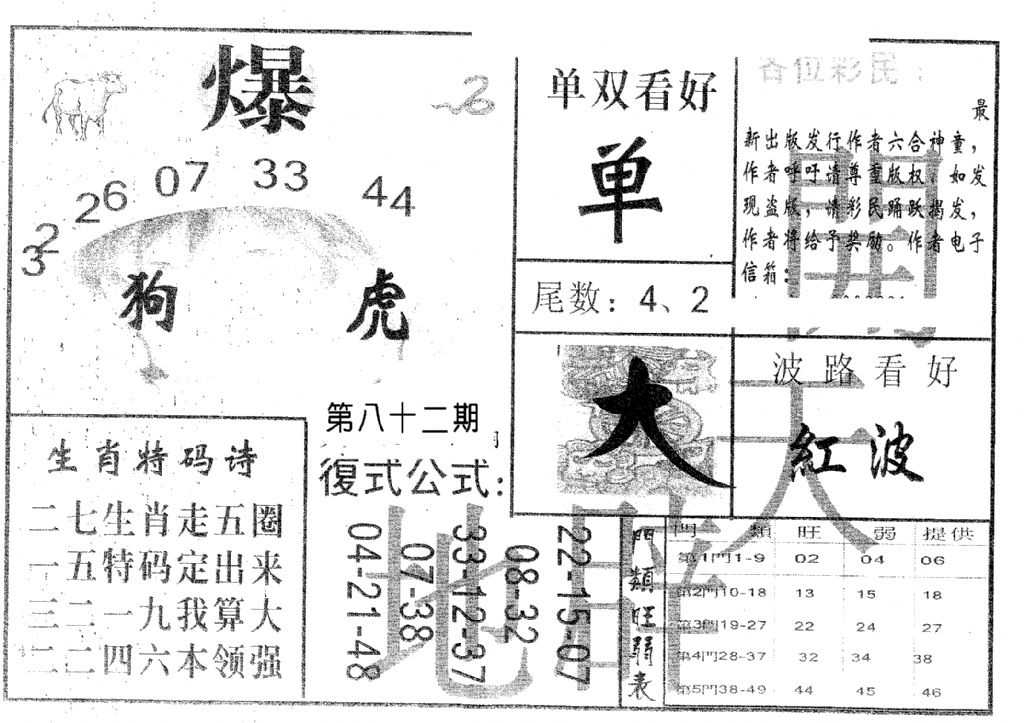 爆
32
26
07
33
44
狗
虎
第八十二期
復式公式:
04-21-48
07-38
33-12-37
08-32
22-15-07
生肖特码诗
二七生肖走五圈
一五特码定出来
三二一九我算大
二二四六本领强
单双看好
单
尾数: 4、2
大
各位彩民:
最
新出版发行作者六合神童,
作者呼吁请尊重版权。如发
现盗版, 请彩民踊跃揭发,
作者将给予奖励。作者电子
信箱:
波路看好
紅波
門類旺弱表
門 類 旺 弱 提供
第1門1-9 02 04 06
第2門10-18 13 15 18
第3門19-27 22 24 27
第4門28-37 32 34 38
第5門38-49 44 45 46